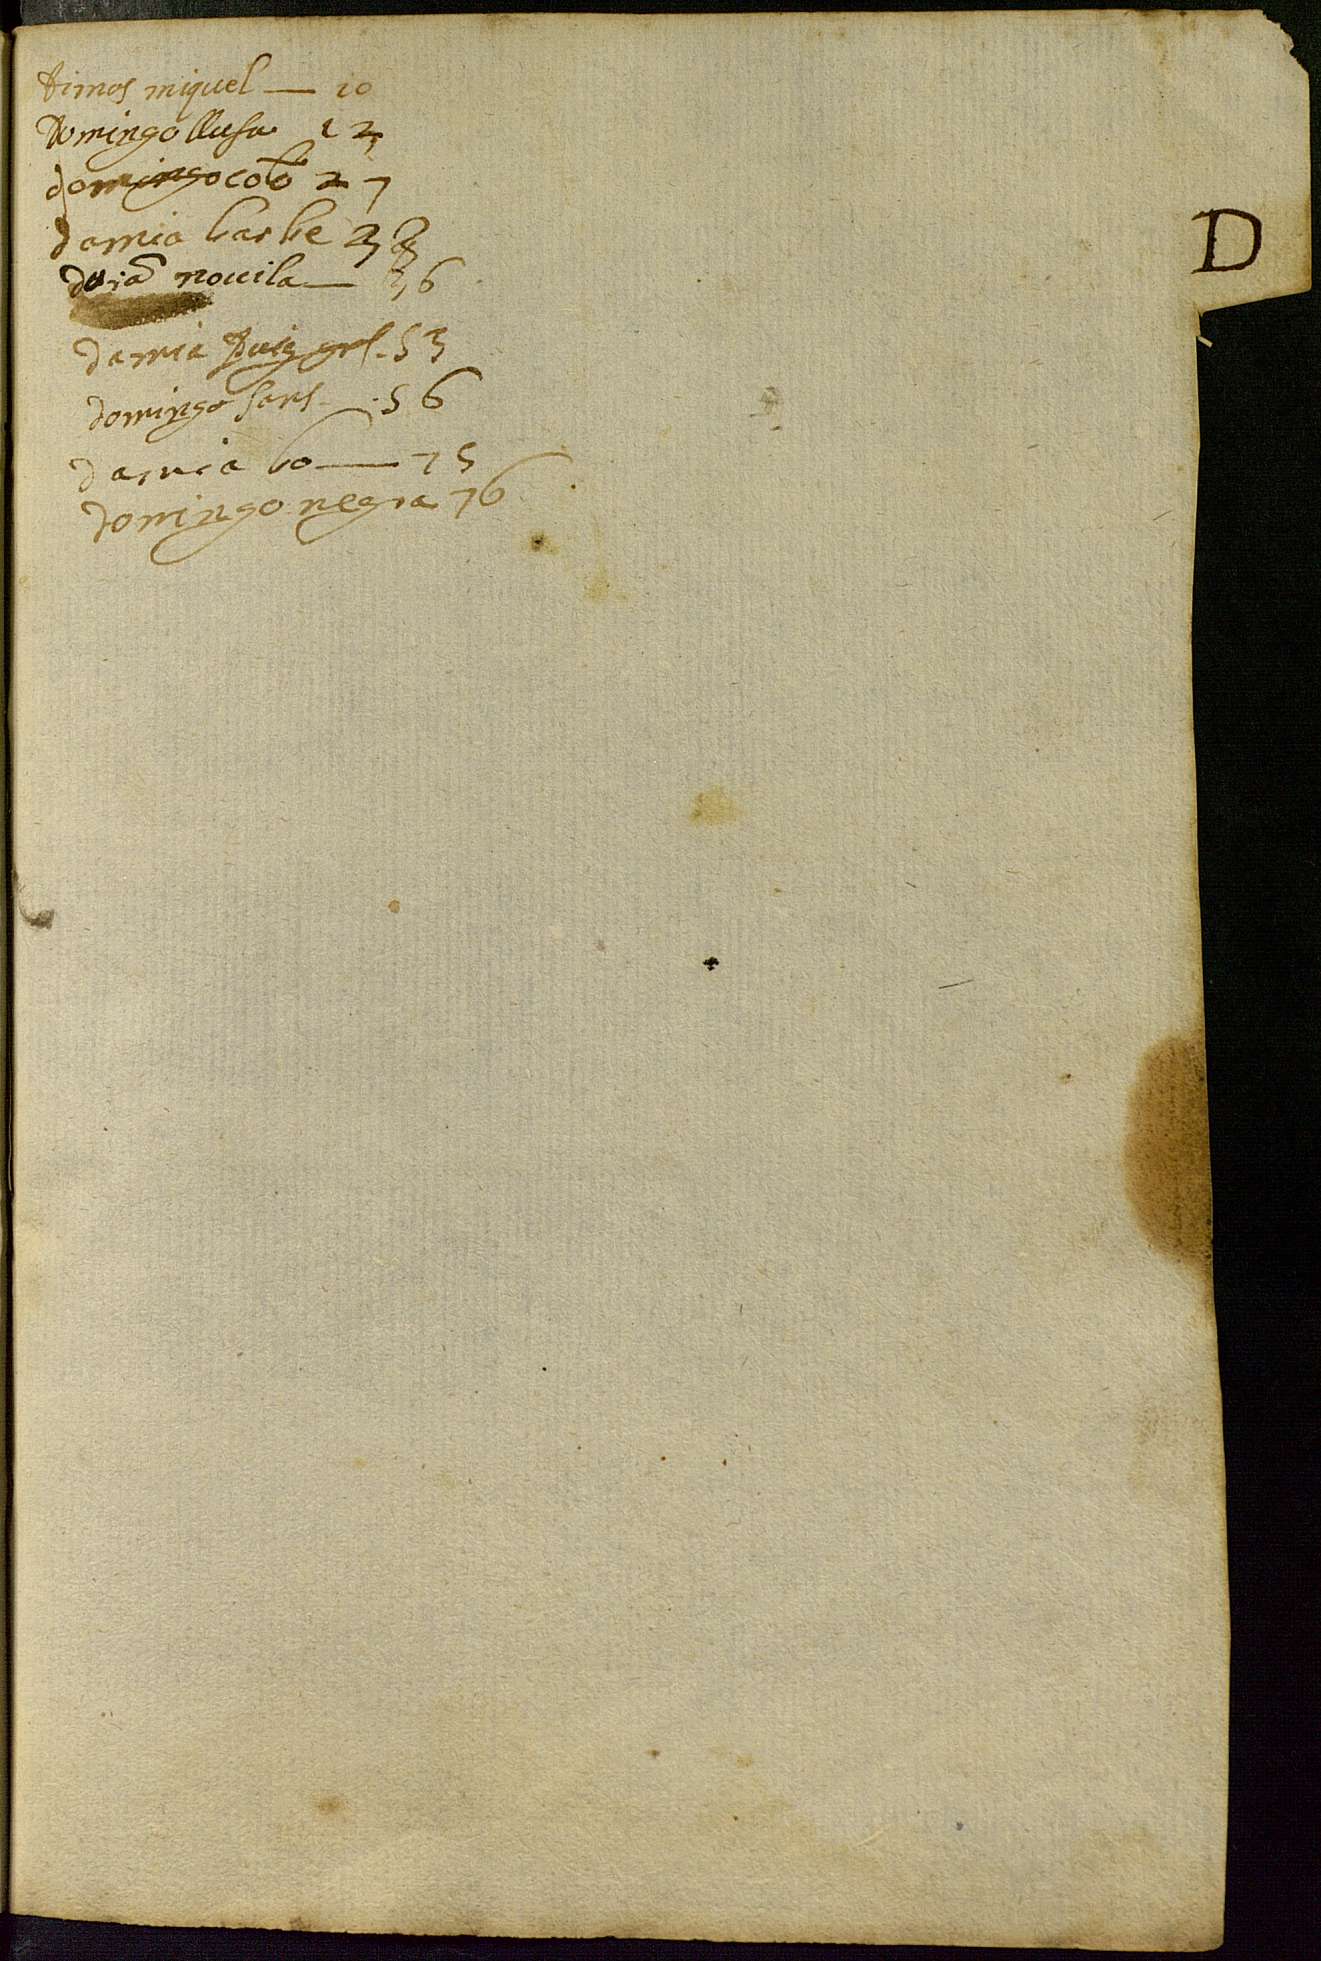 Dimos miquel — 10
Domingo llusa 12
domingo cob 27
damia barbe 38
nouila — 36
damia Puig 53
domingo sans 56
damia bo — 75
domingo negra 76
D